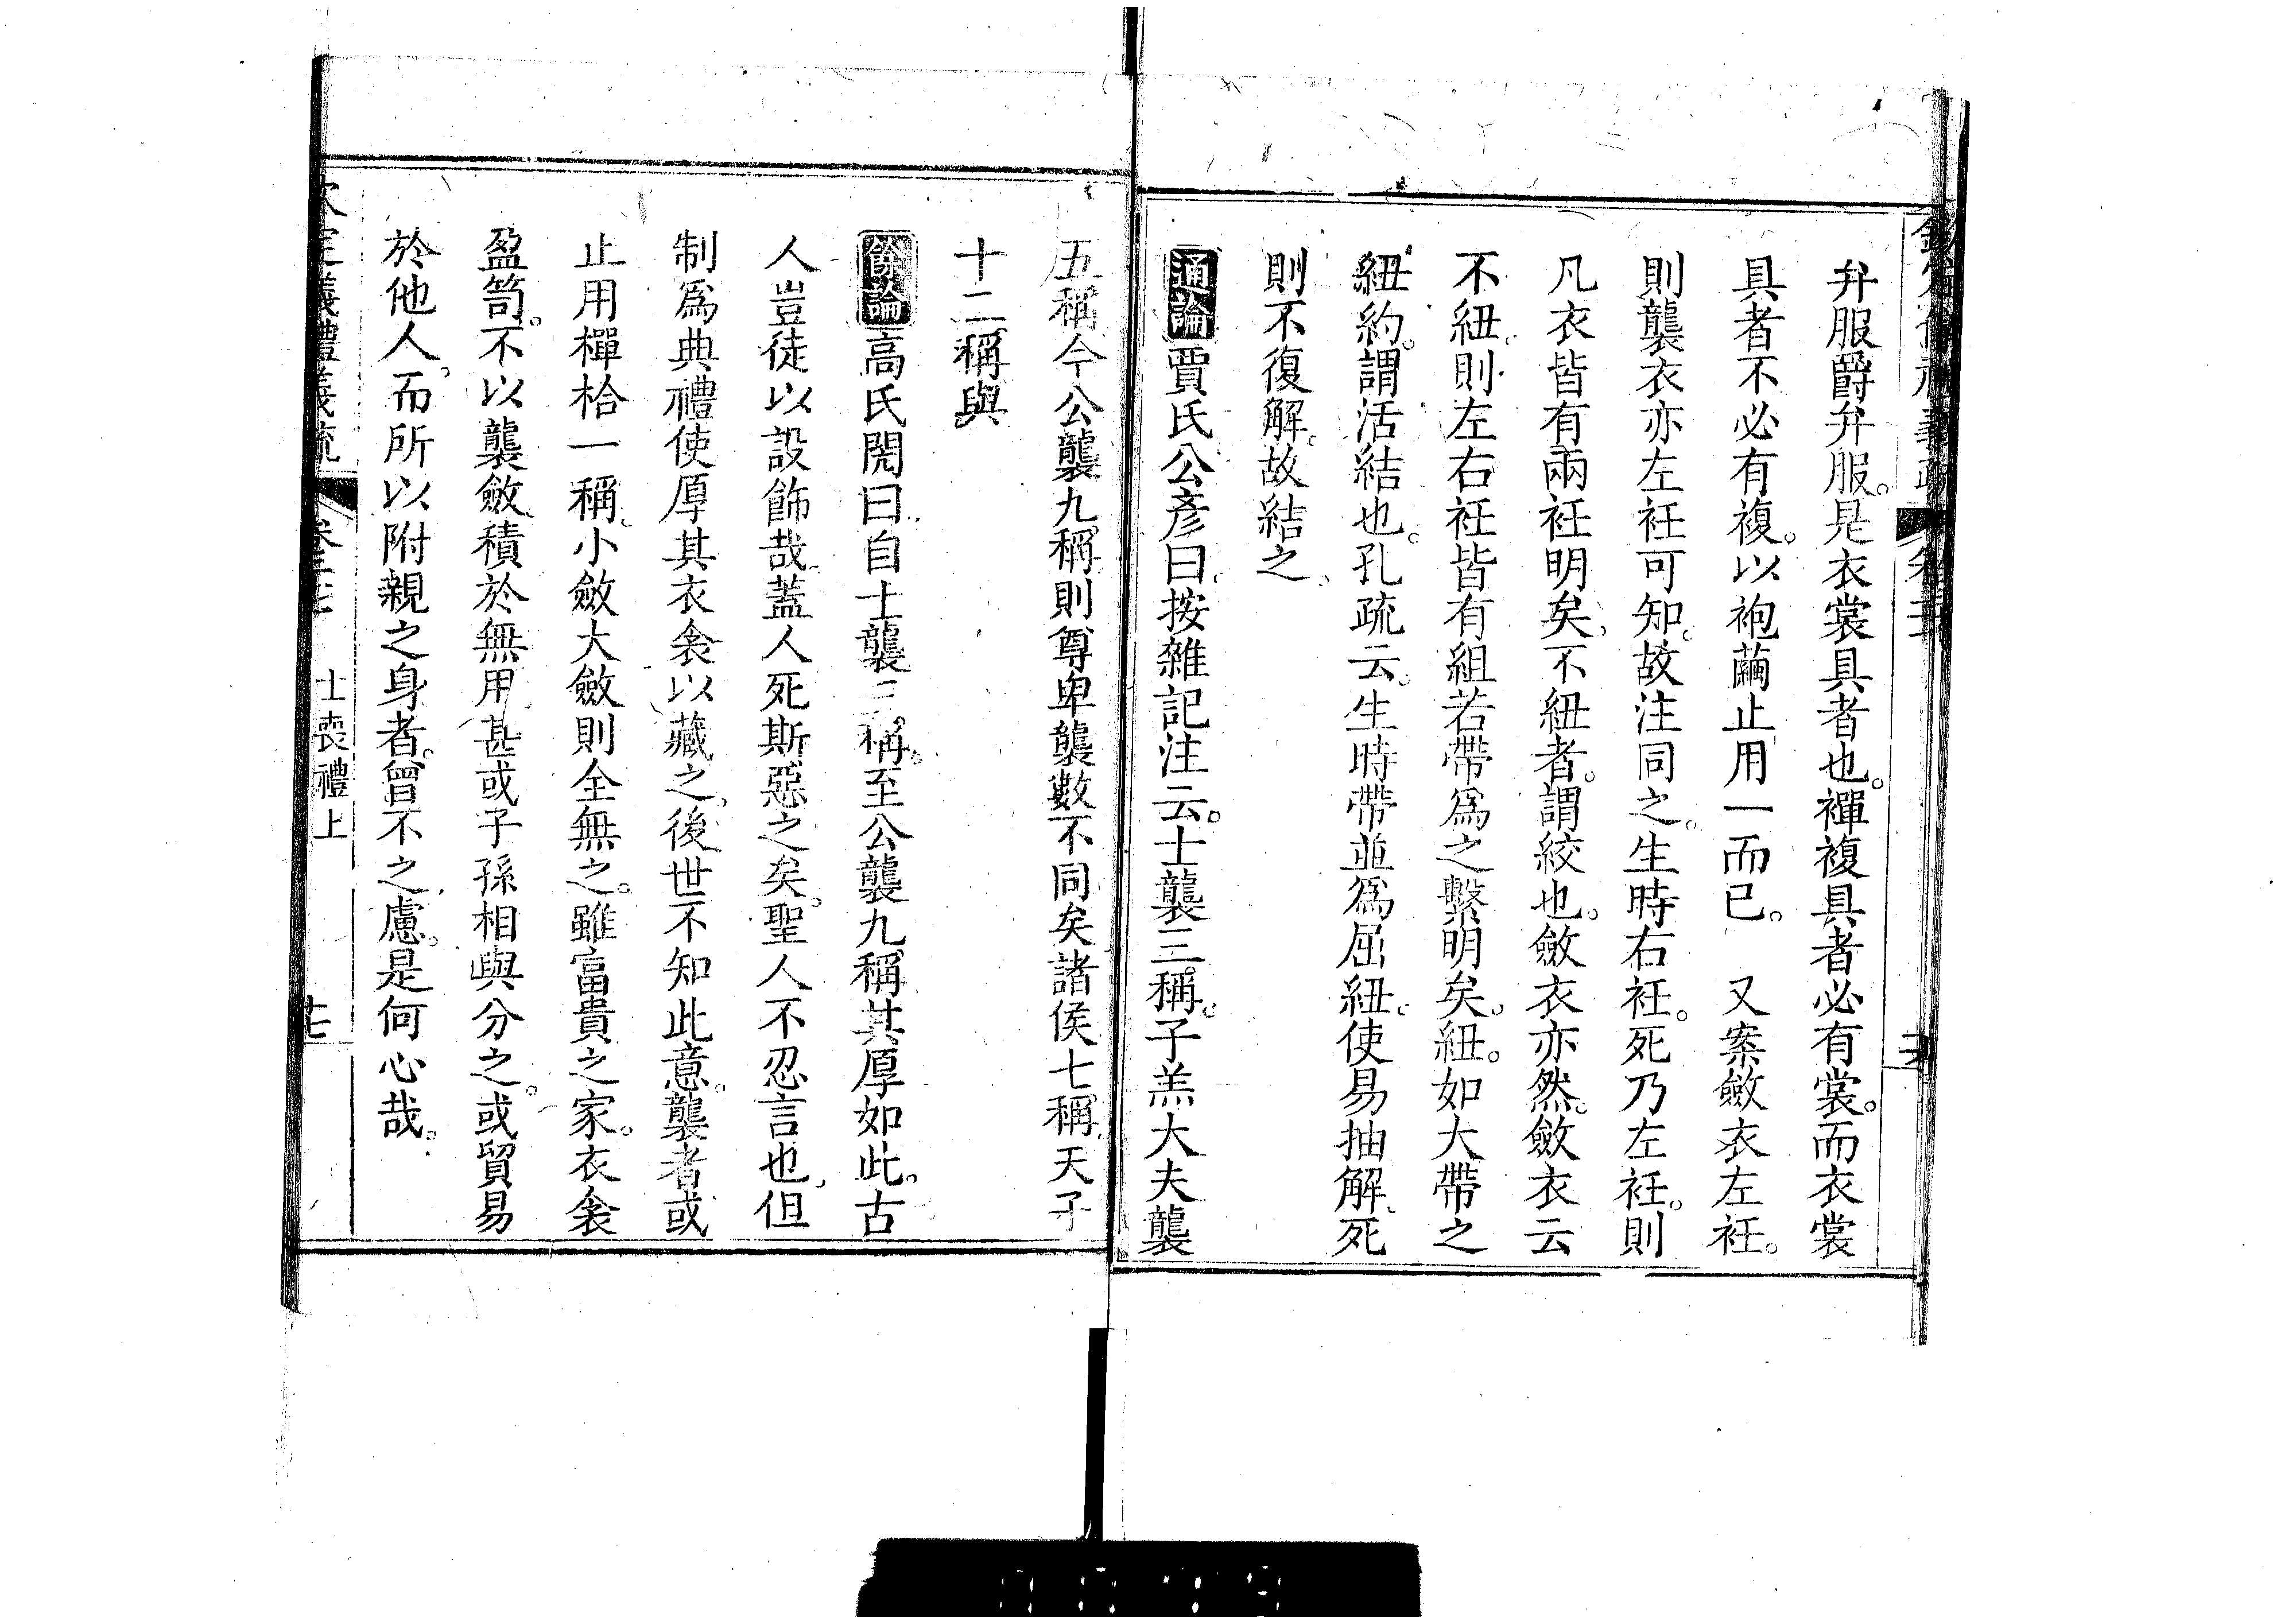 弁服爵弁服。是衣裳具者也。襌複具者必有裳。而衣裳
具者不必有複。以袍繭止用一而已。　又案斂衣左衽。
則襲衣亦左衽可知。故注同之。生時右衽。死乃左衽。則
凡衣皆有兩衽明矣。不紐者。謂絞也。斂衣亦然。斂衣云
不紐。則左右衽皆有組若帶爲之繫明矣。紐。如大帶之
紐約。謂活結也。孔疏云。生時帶並爲屈紐。使易抽解。死
則不復解。故結之。
通論賈氏公彥曰。按雜記注云。士襲三稱。子羔大夫襲
五稱今公襲九稱則尊卑襲數不同矣諸侯七稱天子
十二稱與
餘論高氏閌曰自士襲三稱。至公襲九稱其厚如此。古
人豈徒以設飾哉。蓋人死斯惡之矣。聖人不忍言也。但
制爲典禮使厚其衣衾以藏之。後世不知此意。襲者或
止用襌袷一稱。小斂大斂則全無之。雖富貴之家。衣衾
盈笥。不以襲斂。積於無用甚或子孫相與分之。或貿易
於他人。而所以附親之身者。曾不之慮。是何心哉。
儀禮義疏
士喪禮上
十七